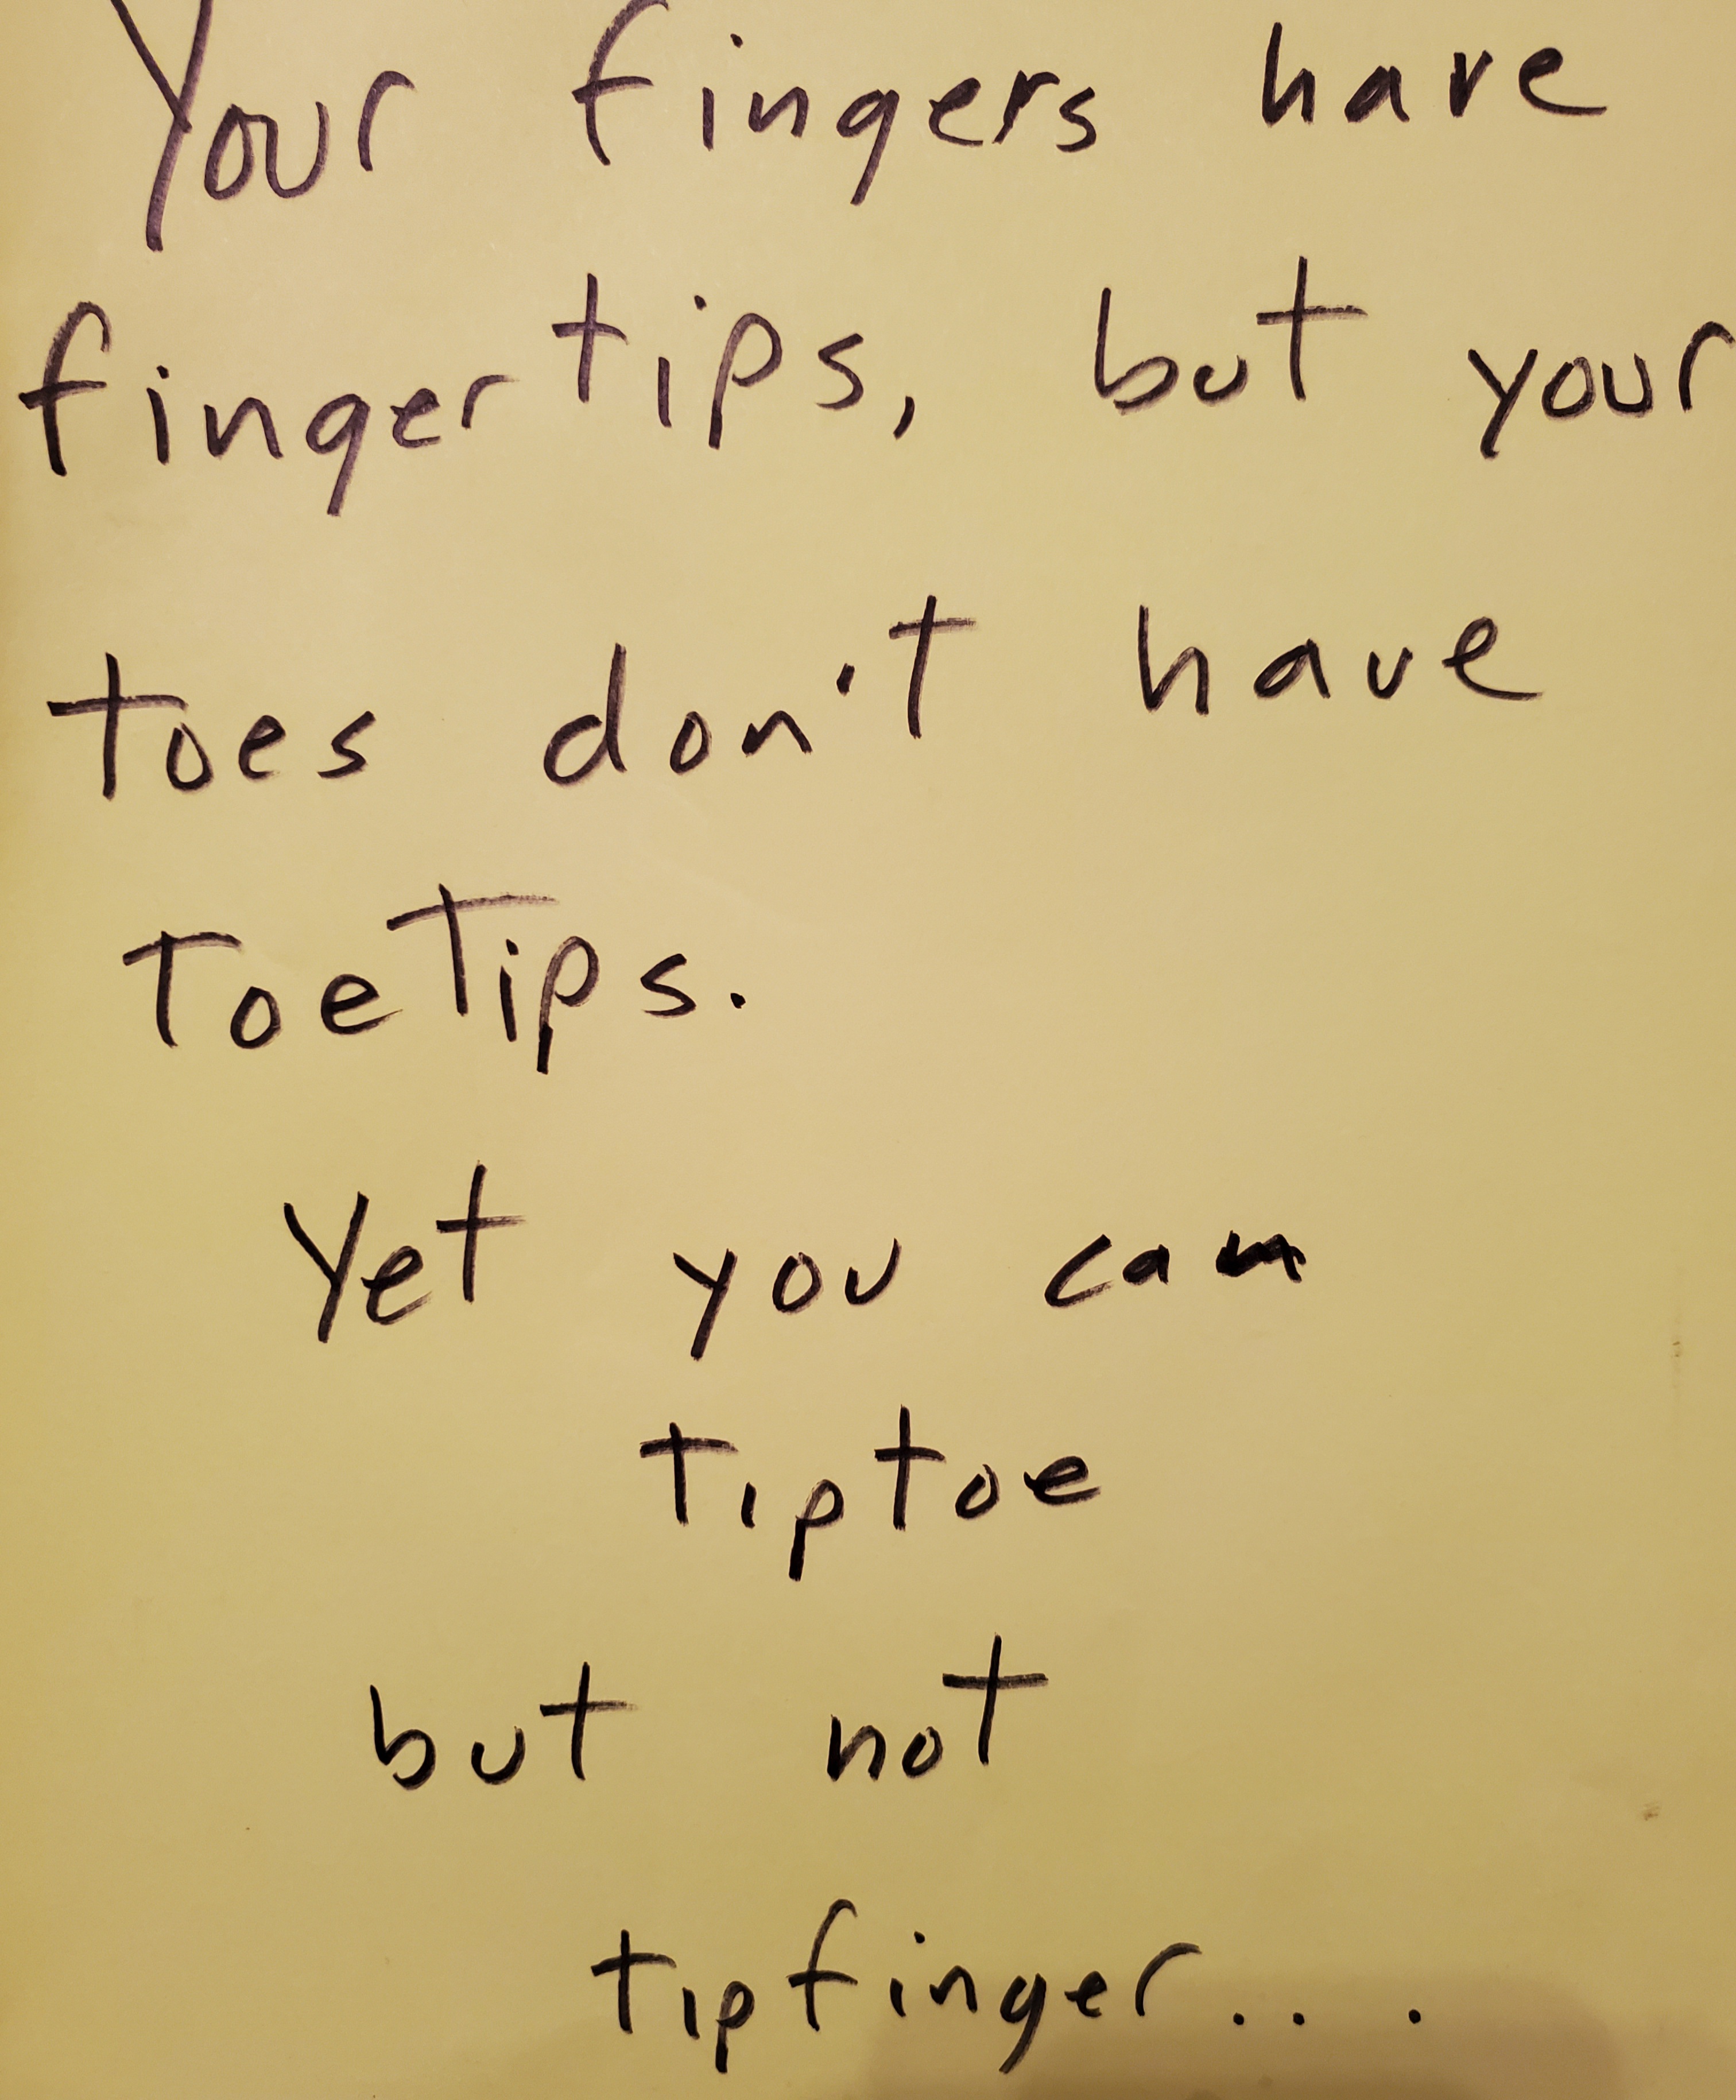 Your fingers have
fingertips, but your
toes don't have
Toe Tips.
Yet you can
Tiptoe
but not
tipfinger...